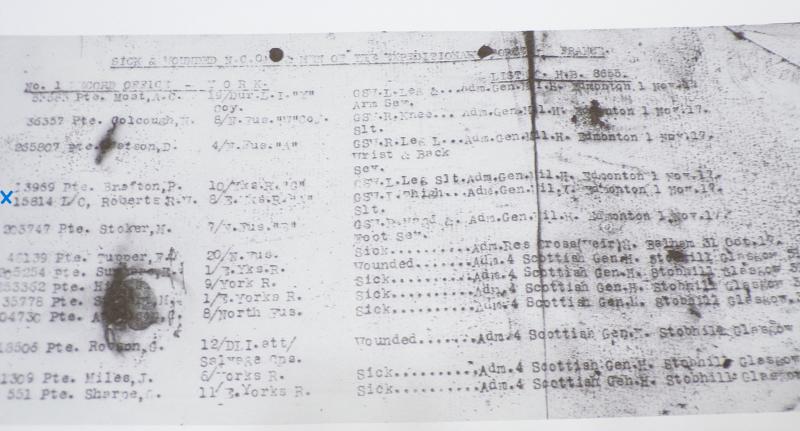 SICK & WOUNDED N.C.O. MEN OF THE EXPEDITIONARY FORCE FRANCE.
No. 1 RECORD OFFICE - YORK. LIST H.B. 8655.
Pte. Moat,A.C. 19/Dur.L.I."Y" GSW.L.Leg &...Adm.Gen.Mil.H. Edmonton 1 Nov.17
Coy. Arm Sev.
36357 Pte. Colcough, 8/N.Fus."W"Coy. GSW.R.Knee...Adm.Gen.Mil.H. Edmonton 1 Nov.17.
Slt.
265807 Pte. 4/N.Fus."A" GSW.R.Leg Adm.Gen.Mil.H. Edmonton 1 Nov.17.
Wrist & Back
Sev.
13969 Pte. Brafton,P. 10/Yks.R."C" GSW.L.Leg Slt.Adm.Gen.Mil.H. Edmonton 1 Nov.17.
X 15814 L/C, Roberts R.W. 8/E.Yks.R. GSW. Thigh...Adm.Gen.Mil.H. Edmonton 1 Nov.17.
Slt.
203747 Pte. Stoker,M. 7/N.Fus."B" GSW. Hand &..Adm.Gen.Mil.H. Edmonton 1 Nov.17.
Foot Sev.
Pte. Tupper, 20/N.Fus. Sick...........Adm.Res Cross(Weir)H. Balham 31 Oct.17.
Pte. 1/E.Yks.R. Wounded........Adm.4 Scottish Gen.H. Stobhill Glasgow
Pte. 9/York R. Sick...........Adm.4 Scottish Gen.H. Stobhill Glasgow
35778 Pte. 1/E.Yorks R. Sick...........Adm.4 Scottish Gen.H. Stobhill Glasgow
04730 Pte. 8/North Fus. Sick...........Adm.4 Scottish Gen.H. Stobhill Glasgow.
Pte. Robson,G. 12/DLI.att/ Wounded........Adm.4 Scottish Gen.H. Stobhill Glasgow
Salvage Cps.
1309 Pte. Miles,J. 6/Yorks R. Sick...........Adm.4 Scottish Gen.H. Stobhill Glasgow
551 Pte. Sharpe, 11/E.Yorks R. Sick...........Adm.4 Scottish Gen.H. Stobhill Glasgow